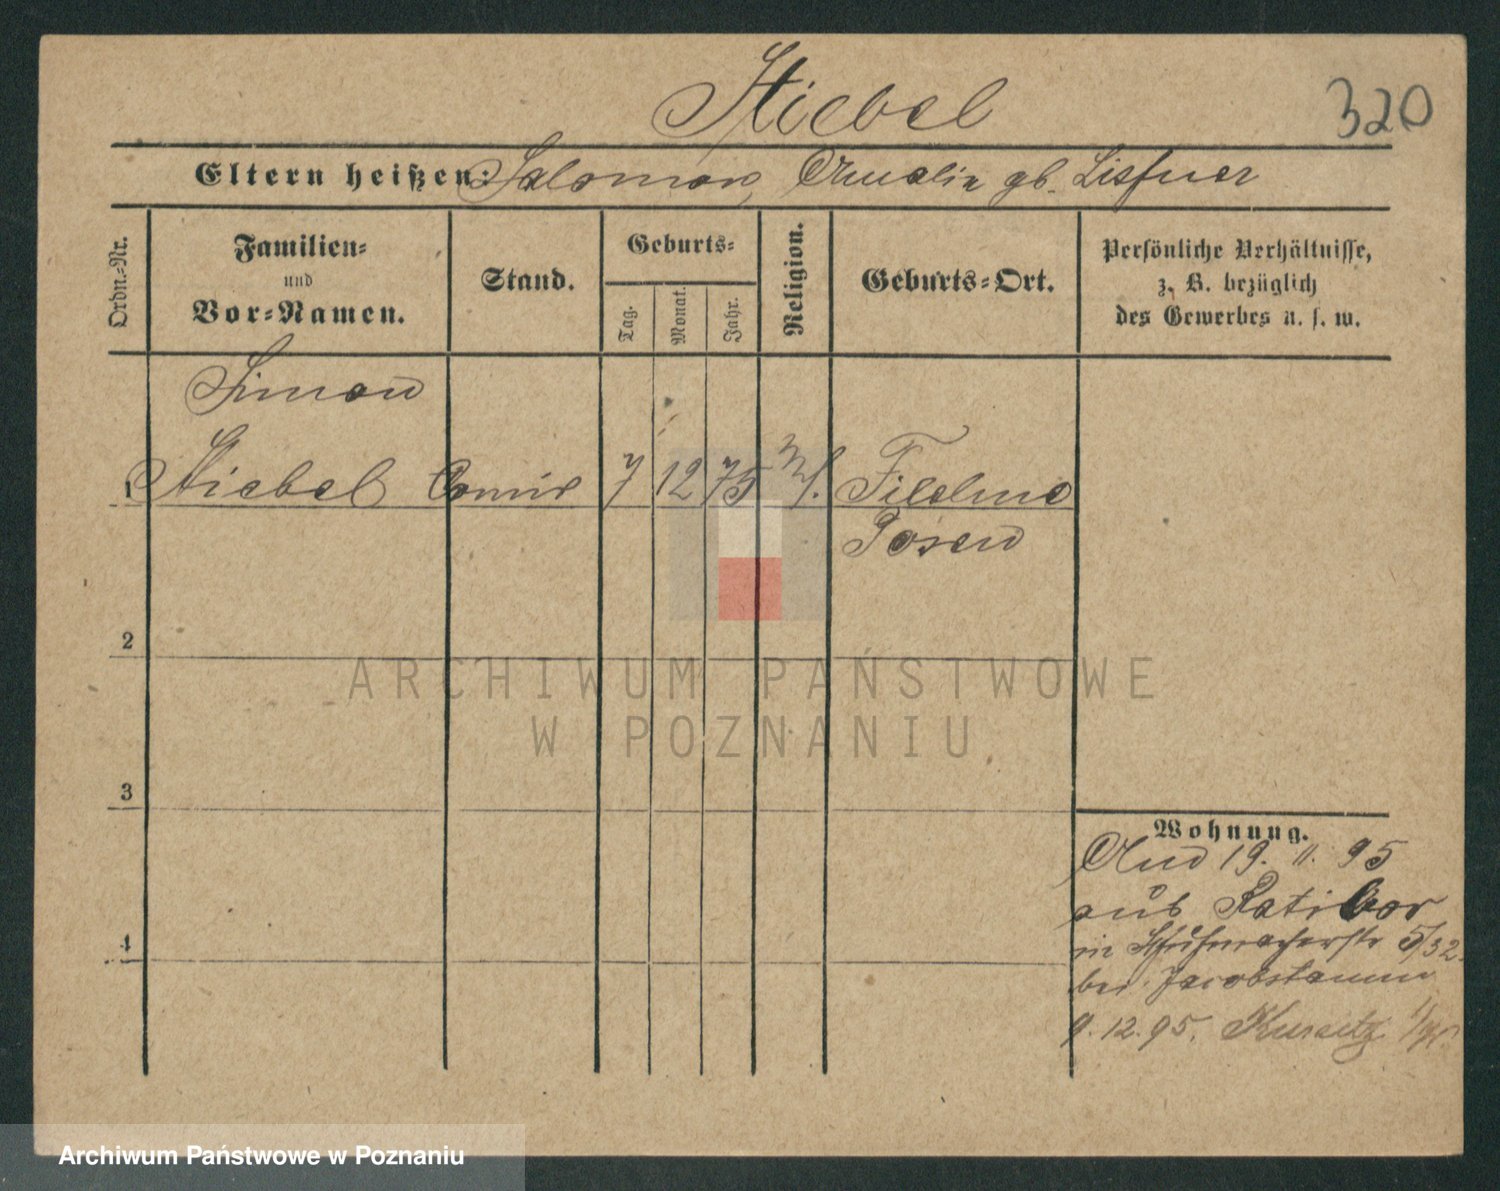 Stiebel
320
Eltern heißen: Salomon, Amalia gb.
Ordn.-Nr.
Familien-
und
Vor-Namen.
Stand.
Geburts-
Tag.
Monat.
Jahr.
Religion.
Geburts-Ort.
Persönliche Verhältnisse,
z. B. bezüglich
des Gewerbes u. s. w.
Simon
1 Stiebel Comis 7 12 75 Filehne
Posen
2
3
4
Wohnung.
19. 11. 95
aus Ratibor
in Schuhmacherstr 5/32
bei
9.12.95.
ARCHIWUM PAŃSTWOWE
W POZNANIU
Archiwum Państwowe w Poznaniu